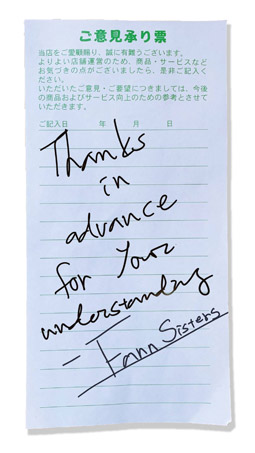 ご意見承り票
当店をご愛顧賜り、誠に有難うございます。
よりよい店舗運営のため、商品・サービスなど
お気づきの点がございましたら、是非ご記入く
ださい。
いただいたご意見・ご要望につきましては、今後
の商品およびサービス向上のための参考とさせて
いただきます。
ご記入日 年 月 日
Thanks
in
advance
for your
understanding
- Fann Sisters